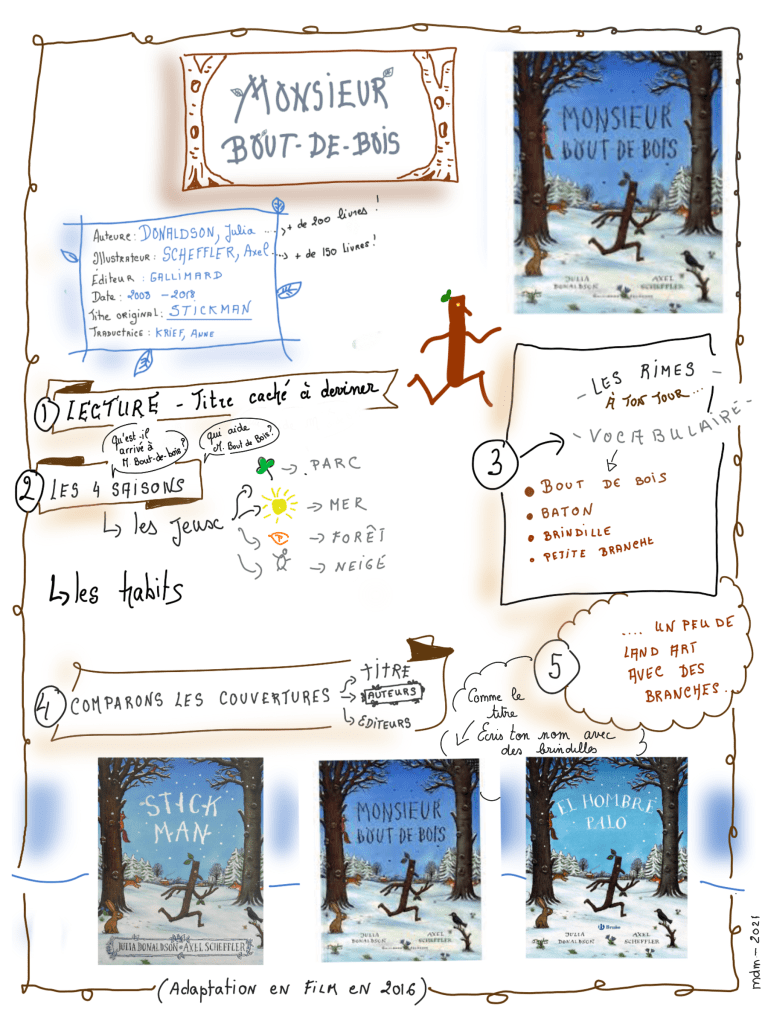 MONSIEUR
BOUT-DE-BOIS
MONSIEUR
BOUT DE BOIS
JULIA
DONALDSON
AXEL
SCHEFFLER
Auteure: DONALDSON, Julia ...> + de 200 livres !
Illustrateur: SCHEFFLER, Axel ...> + de 150 livres !
Éditeur: GALLIMARD
Date: 2008 - 2018
Titre original: STICKMAN
TRADUCTRICE: KRIEF, Anne
1 LECTURE - Titre caché à deviner
Qu'est-il
arrivé à
M. Bout-de-bois?
qui aide
M. Bout de Bois?
2 LES 4 SAISONS
↳ les jeux
→ PARC
→ MER
→ FORÊT
→ NEIGE
↳ les habits
3
LES RIMES
À TON TOUR...
VOCABULAIRE
• BOUT DE BOIS
• BATON
• BRINDILLE
• PETITE BRANCHE
4 COMPARONS LES COUVERTURES
→ TITRE
→ AUTEURS
↳ ÉDITEURS
5
.... UN PEU DE
LAND ART
AVEC DES
BRANCHES.
Comme le
titre
Écris ton nom avec
des brindilles
STICK
MAN
JULIA DONALDSON AXEL SCHEFFLER
MONSIEUR
BOUT DE BOIS
JULIA
DONALDSON
AXEL
SCHEFFLER
EL HOMBRE
PALO
JULIA
DONALDSON
AXEL
SCHEFFLER
Bruño
(Adaptation EN FILM EN 2016)
mdm - 2021